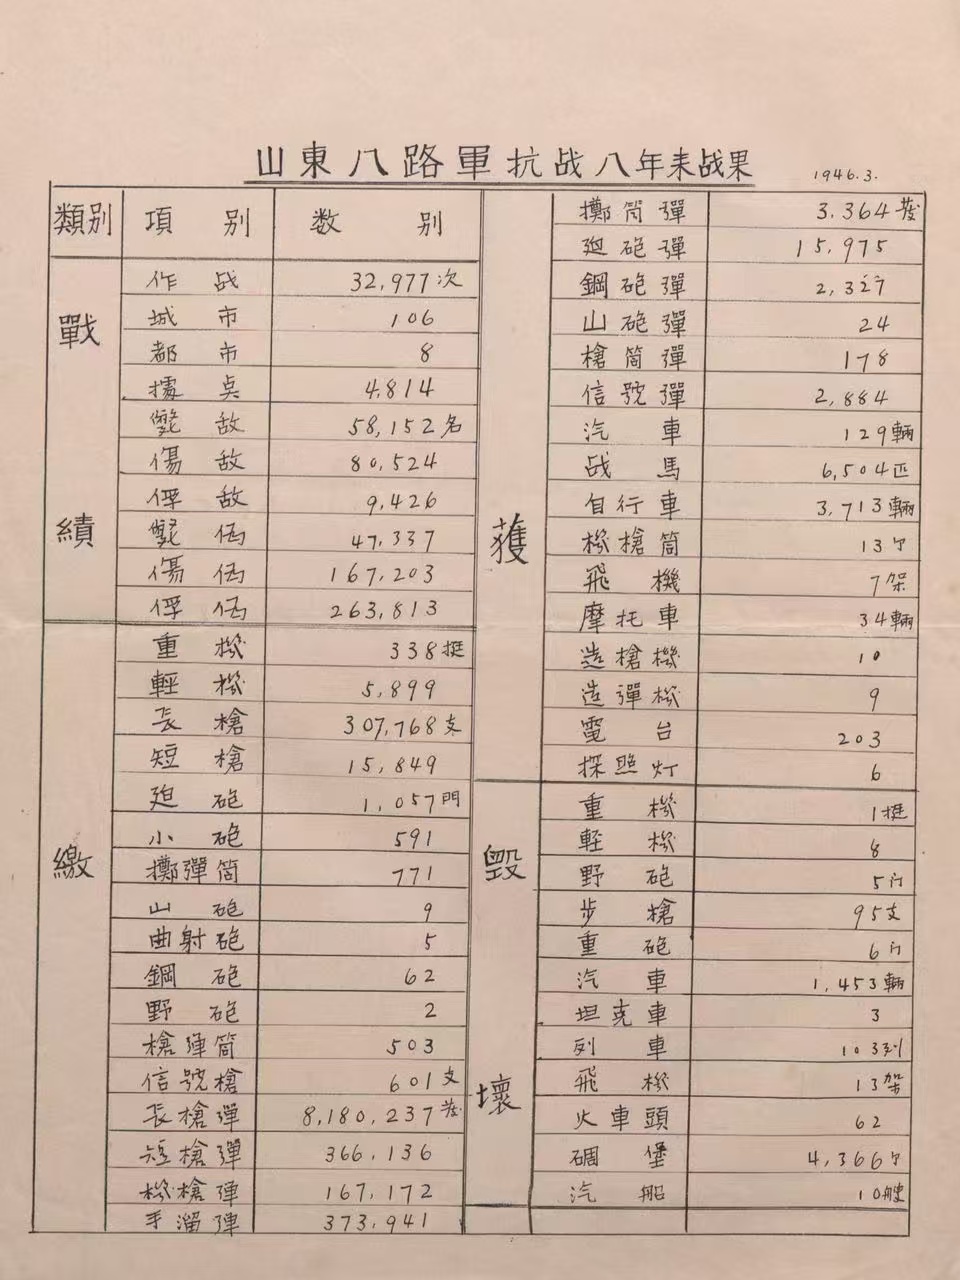 山東八路軍抗战八年来战果 1946.3.
類別 項別 数別
戰績
作战 32,977次
城市 106
都市 8
據点 4,814
斃敌 58,152名
傷敌 80,524
俘敌 9,426
斃伪 47,337
傷伪 167,203
俘伪 263,813
繳
重機 338挺
輕機 5,899
長槍 307,768支
短槍 15,849
廻砲 1,057門
小砲 591
擲彈筒 771
山砲 9
曲射砲 5
鋼砲 62
野砲 2
槍彈筒 503
信號槍 601支
長槍彈 8,180,237發
短槍彈 366,136
機槍彈 167,172
手溜彈 373,941
獲
擲筒彈 3.364發
廻砲彈 15,975
鋼砲彈 2,327
山砲彈 24
槍筒彈 178
信號彈 2,884
汽車 129輛
战馬 6,504匹
自行車 3,713輛
機槍筒 13个
飛機 7架
摩托車 34輛
造槍機 10
造彈機 9
電台 203
探照灯 6
毀壞
重機 1挺
軽機 8
野砲 5门
步槍 95支
重砲 6门
汽車 1,453輛
坦克車 3
列車 103列
飛機 13架
火車頭 62
碉堡 4,366个
汽船 10艘